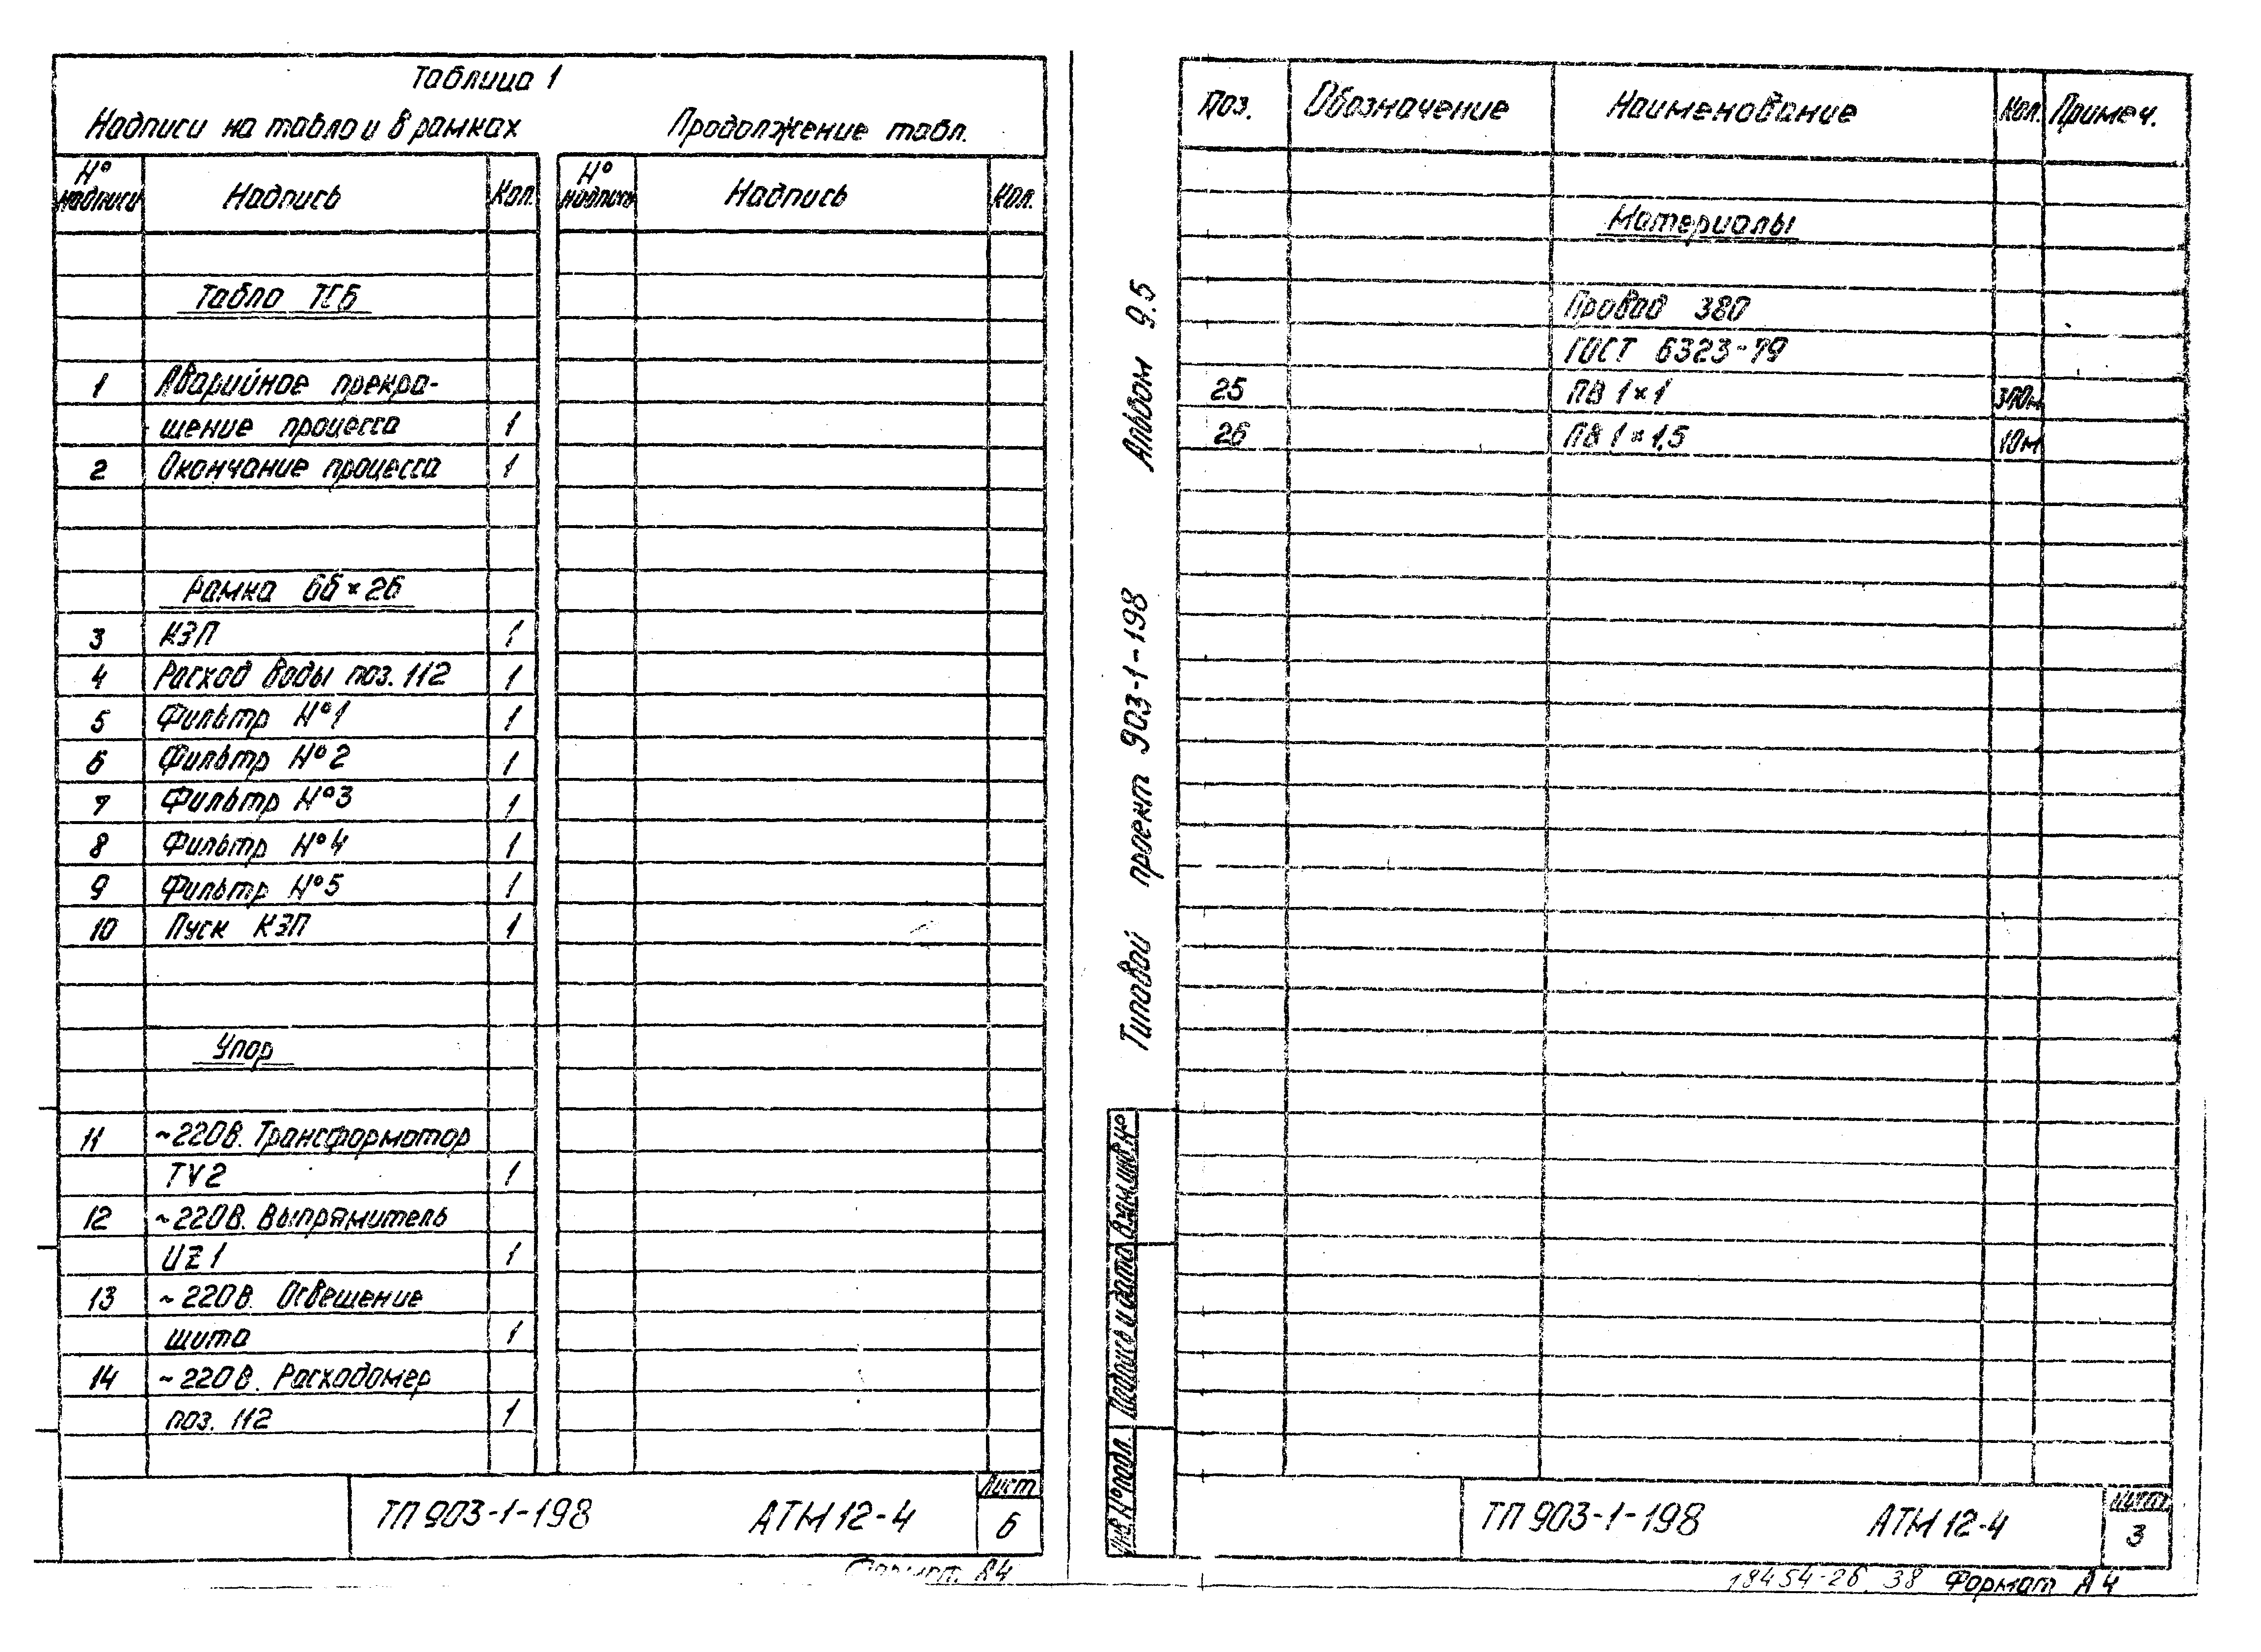 Таблица 1
Надписи на табло и в рамках
Продолжение табл.
№ надписи Надпись Кол.
№ надписи Надпись Кол.
Табло ТСБ
1 Аварийное прекра-
щение процесса 1
2 Окончание процесса 1
Рамка 66×26
3 КЗП 1
4 Расход воды поз. 112 1
5 Фильтр №1 1
6 Фильтр №2 1
7 Фильтр №3 1
8 Фильтр №4 1
9 Фильтр №5 1
10 Пуск КЗП 1
Упор
11 ~220В. Трансформатор
TV2 1
12 ~220В. Выпрямитель
UZ1 1
13 ~220В. Освещение
щита 1
14 ~220В. Расходомер
поз. 112 1
ТП 903-1-198 АТМ 12-4
Лист
6
Формат А4
Типовой проект 903-1-198 Альбом 9.5
Поз. Обозначение Наименование Кол. Примеч.
Материалы
Провод 380
ГОСТ 6323-79
25 ПВ 1×1
26 ПВ 1×1,5 10м
Взам. инв. №
Подпись и дата
Инв. № подл.
ТП 903-1-198 АТМ 12-4
Лист
3
18454-26. 38 Формат А4